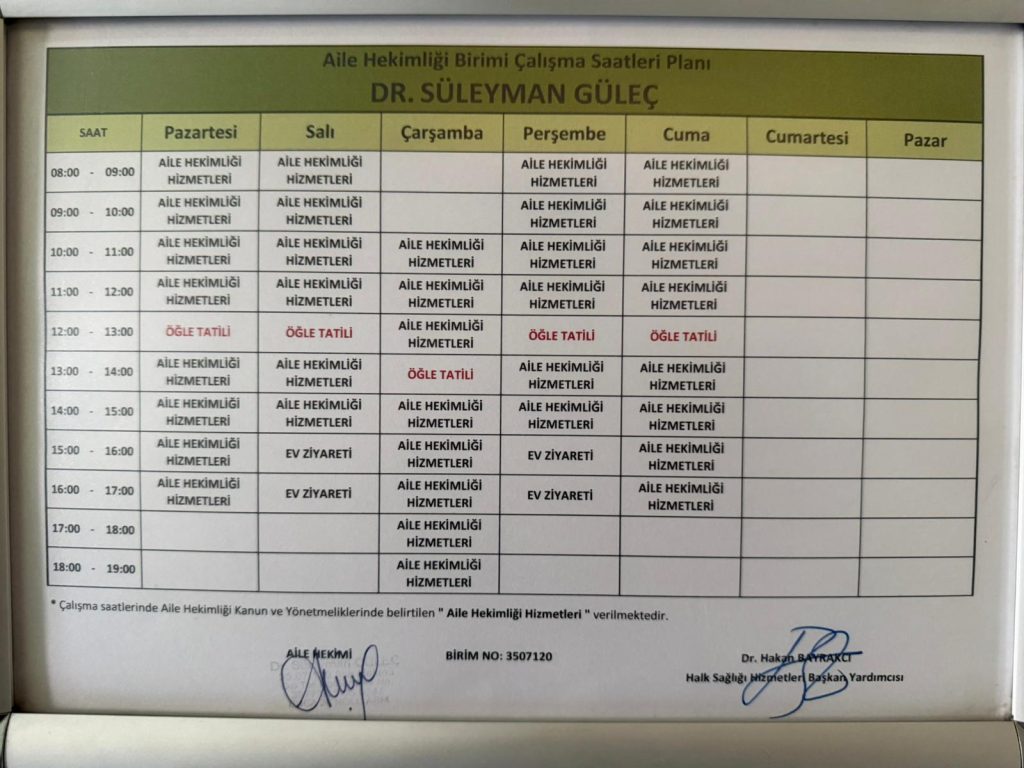 Aile Hekimliği Birimi Çalışma Saatleri Planı
DR. SÜLEYMAN GÜLEÇ
SAAT Pazartesi Salı Çarşamba Perşembe Cuma Cumartesi Pazar
08:00 - 09:00 AİLE HEKİMLİĞİ HİZMETLERİ AİLE HEKİMLİĞİ HİZMETLERİ AİLE HEKİMLİĞİ HİZMETLERİ AİLE HEKİMLİĞİ HİZMETLERİ
09:00 - 10:00 AİLE HEKİMLİĞİ HİZMETLERİ AİLE HEKİMLİĞİ HİZMETLERİ AİLE HEKİMLİĞİ HİZMETLERİ AİLE HEKİMLİĞİ HİZMETLERİ
10:00 - 11:00 AİLE HEKİMLİĞİ HİZMETLERİ AİLE HEKİMLİĞİ HİZMETLERİ AİLE HEKİMLİĞİ HİZMETLERİ AİLE HEKİMLİĞİ HİZMETLERİ AİLE HEKİMLİĞİ HİZMETLERİ
11:00 - 12:00 AİLE HEKİMLİĞİ HİZMETLERİ AİLE HEKİMLİĞİ HİZMETLERİ AİLE HEKİMLİĞİ HİZMETLERİ AİLE HEKİMLİĞİ HİZMETLERİ AİLE HEKİMLİĞİ HİZMETLERİ
12:00 - 13:00 ÖĞLE TATİLİ ÖĞLE TATİLİ AİLE HEKİMLİĞİ HİZMETLERİ ÖĞLE TATİLİ ÖĞLE TATİLİ
13:00 - 14:00 AİLE HEKİMLİĞİ HİZMETLERİ AİLE HEKİMLİĞİ HİZMETLERİ ÖĞLE TATİLİ AİLE HEKİMLİĞİ HİZMETLERİ AİLE HEKİMLİĞİ HİZMETLERİ
14:00 - 15:00 AİLE HEKİMLİĞİ HİZMETLERİ AİLE HEKİMLİĞİ HİZMETLERİ AİLE HEKİMLİĞİ HİZMETLERİ AİLE HEKİMLİĞİ HİZMETLERİ AİLE HEKİMLİĞİ HİZMETLERİ
15:00 - 16:00 AİLE HEKİMLİĞİ HİZMETLERİ EV ZİYARETİ AİLE HEKİMLİĞİ HİZMETLERİ EV ZİYARETİ AİLE HEKİMLİĞİ HİZMETLERİ
16:00 - 17:00 AİLE HEKİMLİĞİ HİZMETLERİ EV ZİYARETİ AİLE HEKİMLİĞİ HİZMETLERİ EV ZİYARETİ AİLE HEKİMLİĞİ HİZMETLERİ
17:00 - 18:00 AİLE HEKİMLİĞİ HİZMETLERİ
18:00 - 19:00 AİLE HEKİMLİĞİ HİZMETLERİ
* Çalışma saatlerinde Aile Hekimliği Kanun ve Yönetmeliklerinde belirtilen " Aile Hekimliği Hizmetleri " verilmektedir.
AİLE HEKİMİ BİRİM NO: 3507120 Dr. Hakan BAYRAKCI
Halk Sağlığı Hizmetleri Başkan Yardımcısı